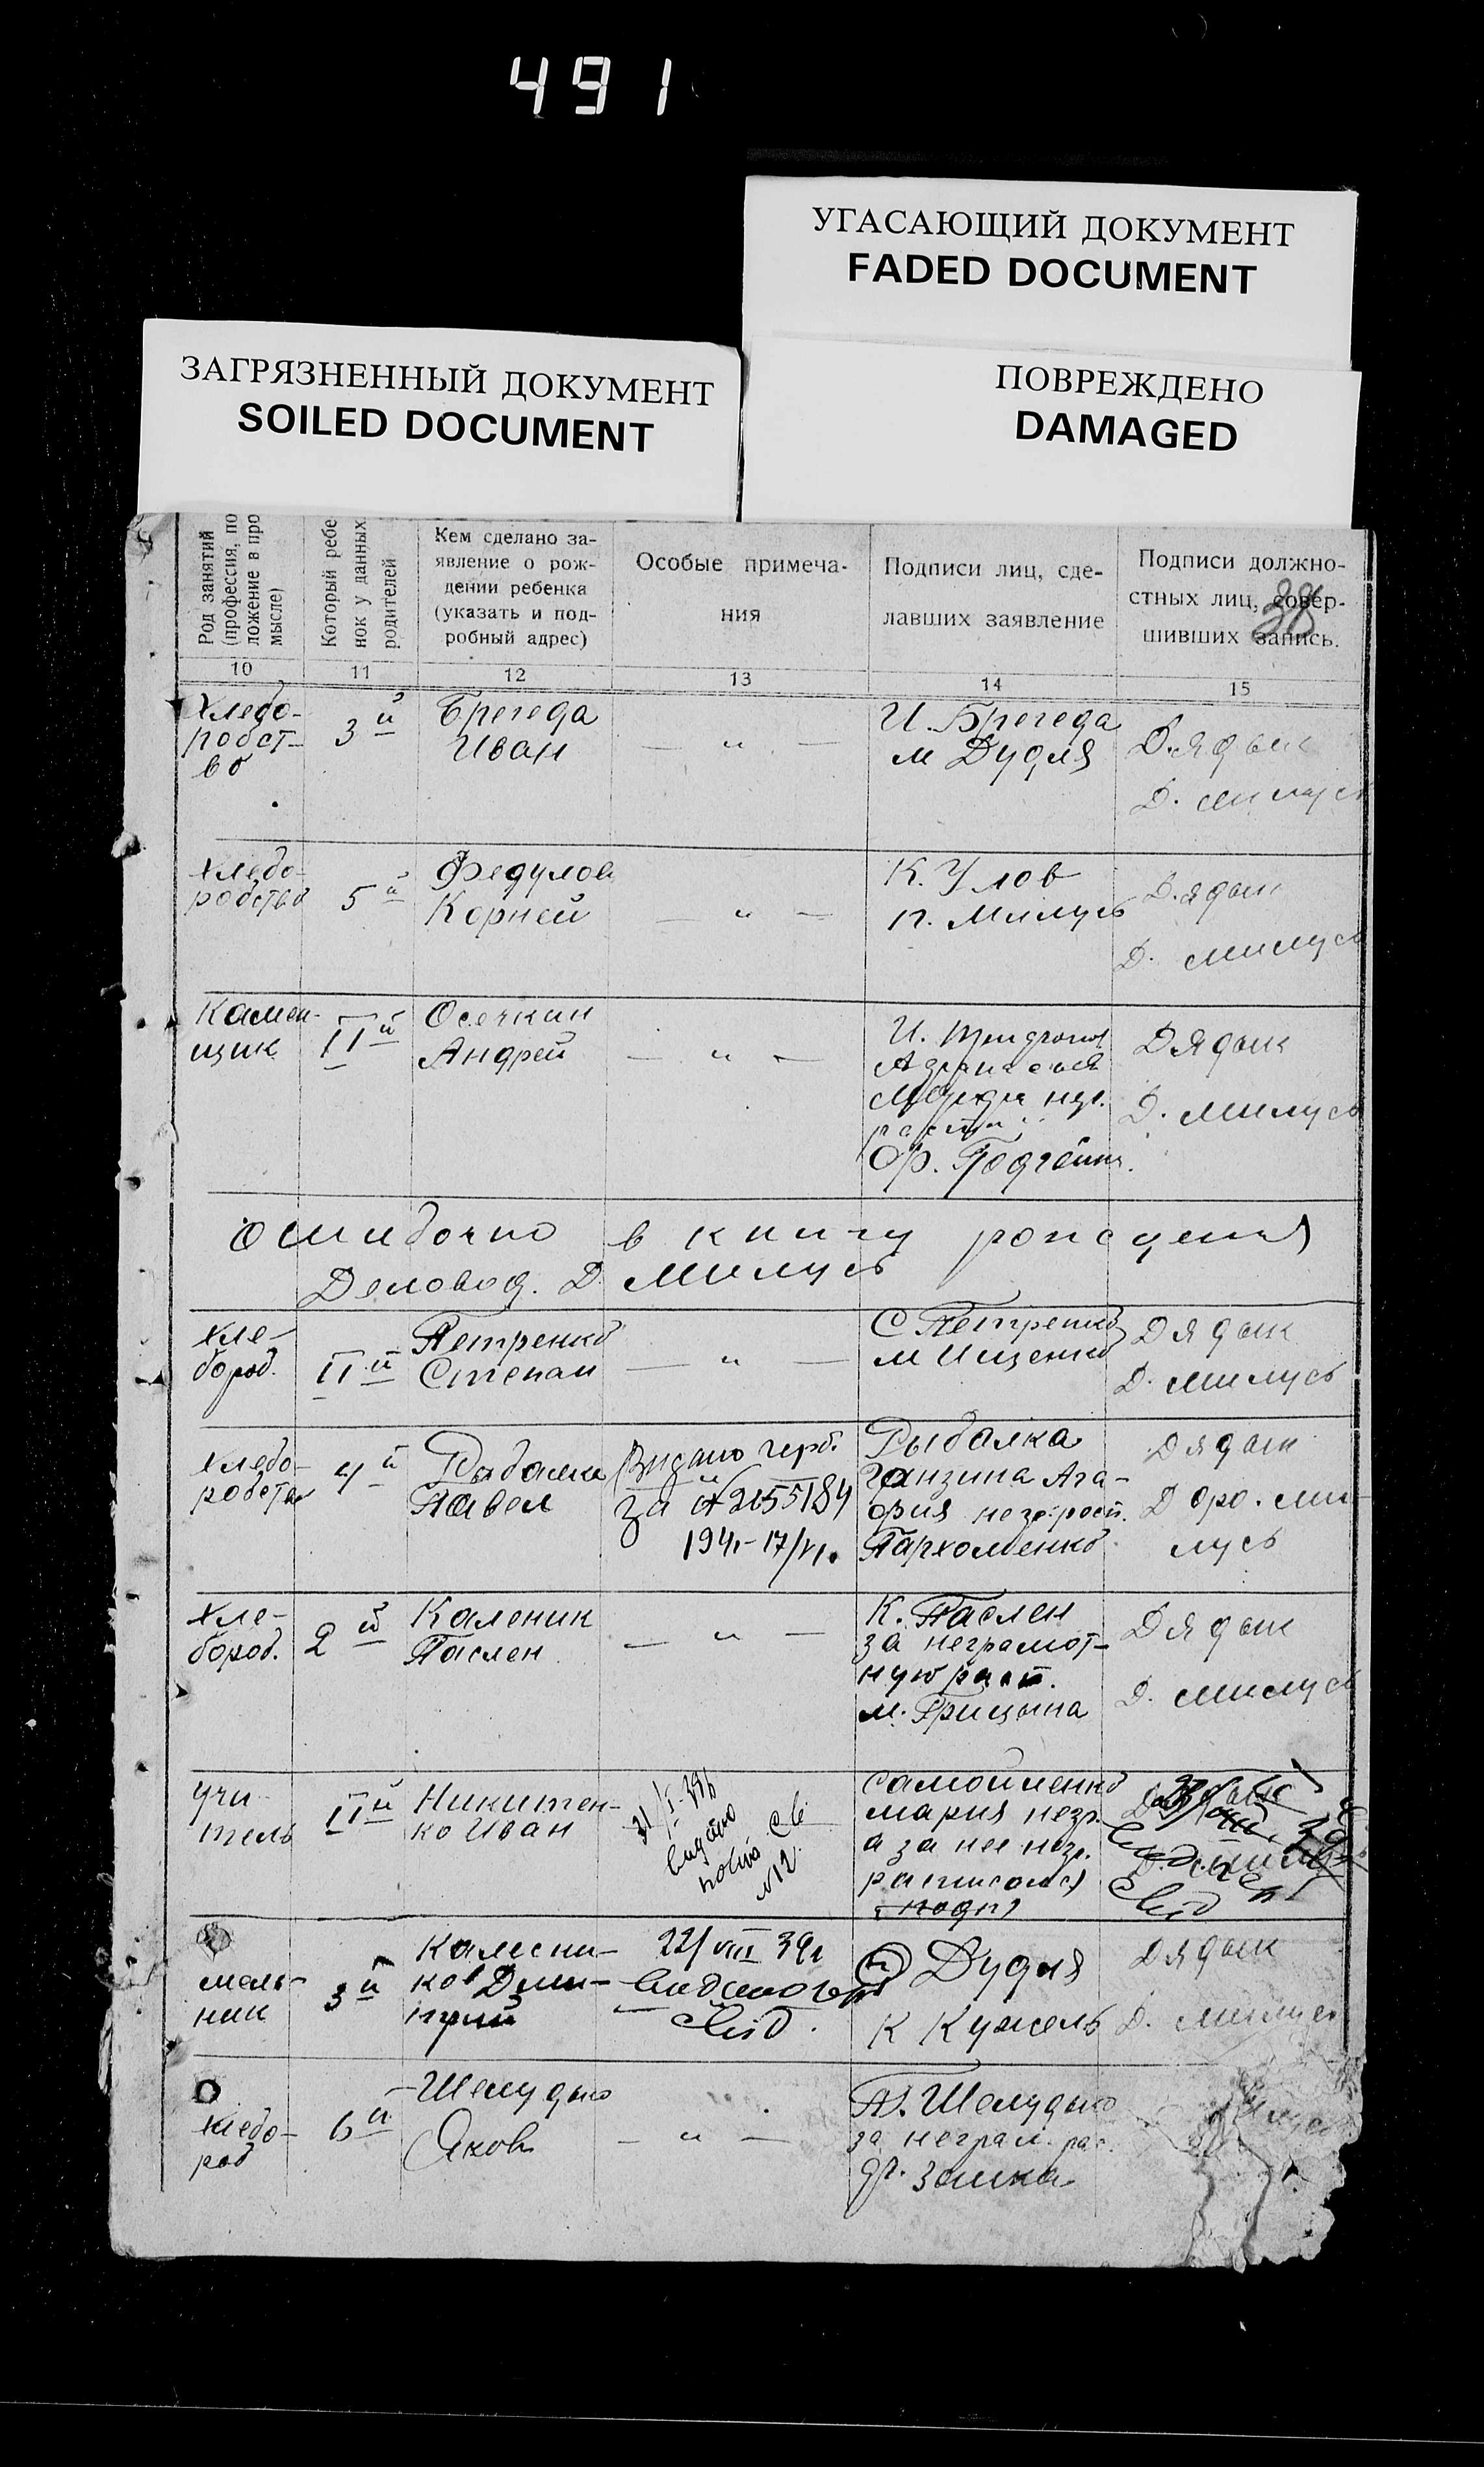 491
УГАСАЮЩИЙ ДОКУМЕНТ
FADED DOCUMENT
ЗАГРЯЗНЕННЫЙ ДОКУМЕНТ
SOILED DOCUMENT
ПОВРЕЖДЕНО
DAMAGED
Род занятий
(профессия, по
ложение в про
мысле)
Который ребе
нок у данных
родителей
Кем сделано за-
явление о рож-
дении ребенка
(указать и под-
робный адрес)
Особые примеча-
ния
Подписи лиц, сде-
лавших заявление
Подписи должно-
стных лиц, совер-
шивших запись.
38
10 11 12 13 14 15
Хлебо-
робст-
во
3й
Брегеда
Иван
— " —
И. Брегеда
М Дудля
Дядык
Д. Милусь
хлебо-
робство
5й
Федулов
Корней
— " —
К. Улов
П. Милусь
Дядык
Д. Милусь
Камен-
щик
IIй
Осечкин
Андрей
— " —
Дядык
Д. Милусь
Ошибочно в книгу рождения
Деловод. Д. Милусь
хле-
бороб.
IIй
Петренко
Степан
— " —
С Петренко
М Ищенко
Дядык
Д. Милусь
хлебо-
робство
4й
Рыбалка
Павел
Видано герб.
за № 2155184
194 - 17/VI.
Рыбалка
Ганзина Ага-
фия
Пархоменко
Дядык
Д Ми-
лусь
хле-
бороб.
2й
Каленик
Паслен
— " —
К. Паслен
за неграмот-
ную расп.
М. Грицына
Дядык
Д. Милусь
учи
тель
IIй
Никитен-
ко Иван
видано
№12
Самойленко
Мария негр.
а за нее негр.
расписался
мель-
ник
3й
Колесни-
ков Дми-
трий
22/VIII 39г
видано герб
свід.
Дудля
К Кужель
Дядык
Д. Милусь
хлебо-
роб
6й
Шелудько
Яков
— " —
П. Шелудько
за неграм. рас.
Заика